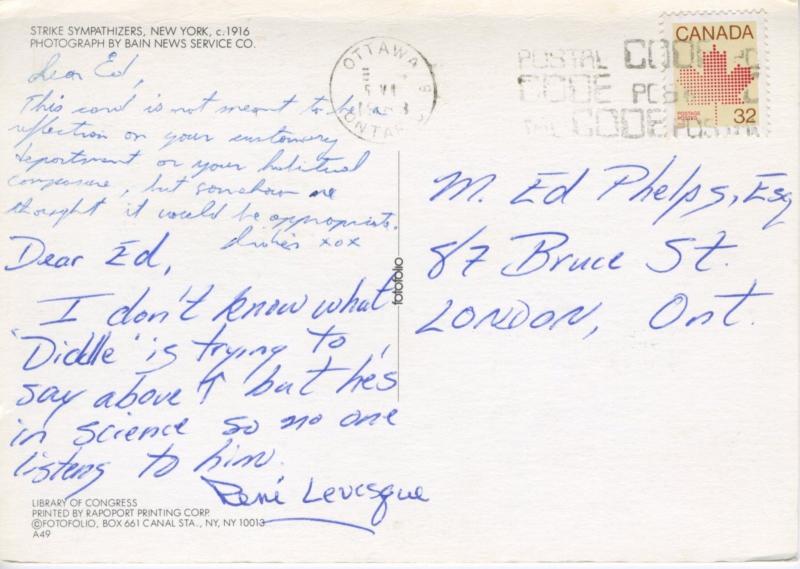 STRIKE SYMPATHIZERS, NEW YORK, c.1916
PHOTOGRAPH BY BAIN NEWS SERVICE CO.
Dear Ed,
This card is not meant to be a
reflection on your customary
deportment or your habitual
composure, but somehow we
thought it would be appropriate.
xox
Dear Ed,
I don't know what
'Diddle' is trying to
say above ↑ but he's
in science so no one
listens to him.
René Levesque
LIBRARY OF CONGRESS
PRINTED BY RAPOPORT PRINTING CORP.
©FOTOFOLIO, BOX 661 CANAL STA., NY, NY 10013
A49
fotofolio
OTTAWA
ONTARIO
POSTAL CODE
CODE POSTAL
CODE POSTAL
CANADA
POSTAGE
POSTES
32
M. Ed Phelps, Esq
87 Bruce St.
LONDON, Ont.